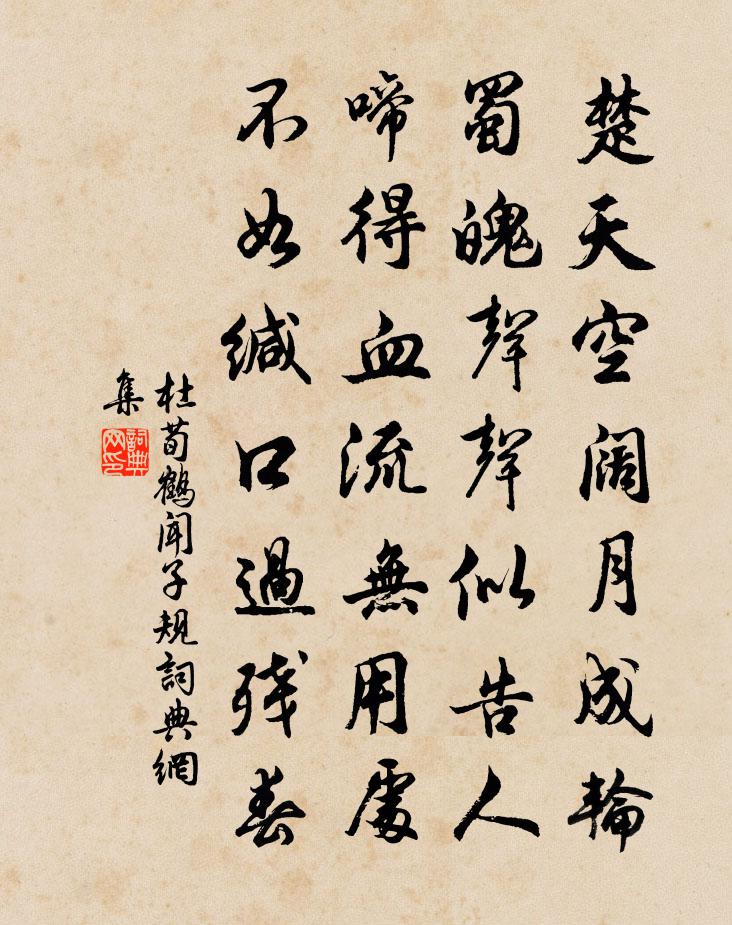 楚天空闊月成輪
蜀魄聲聲似告人
啼得血流無用處
不如緘口過殘春
杜荀鶴聞子規詞典網
集
詞典
网印